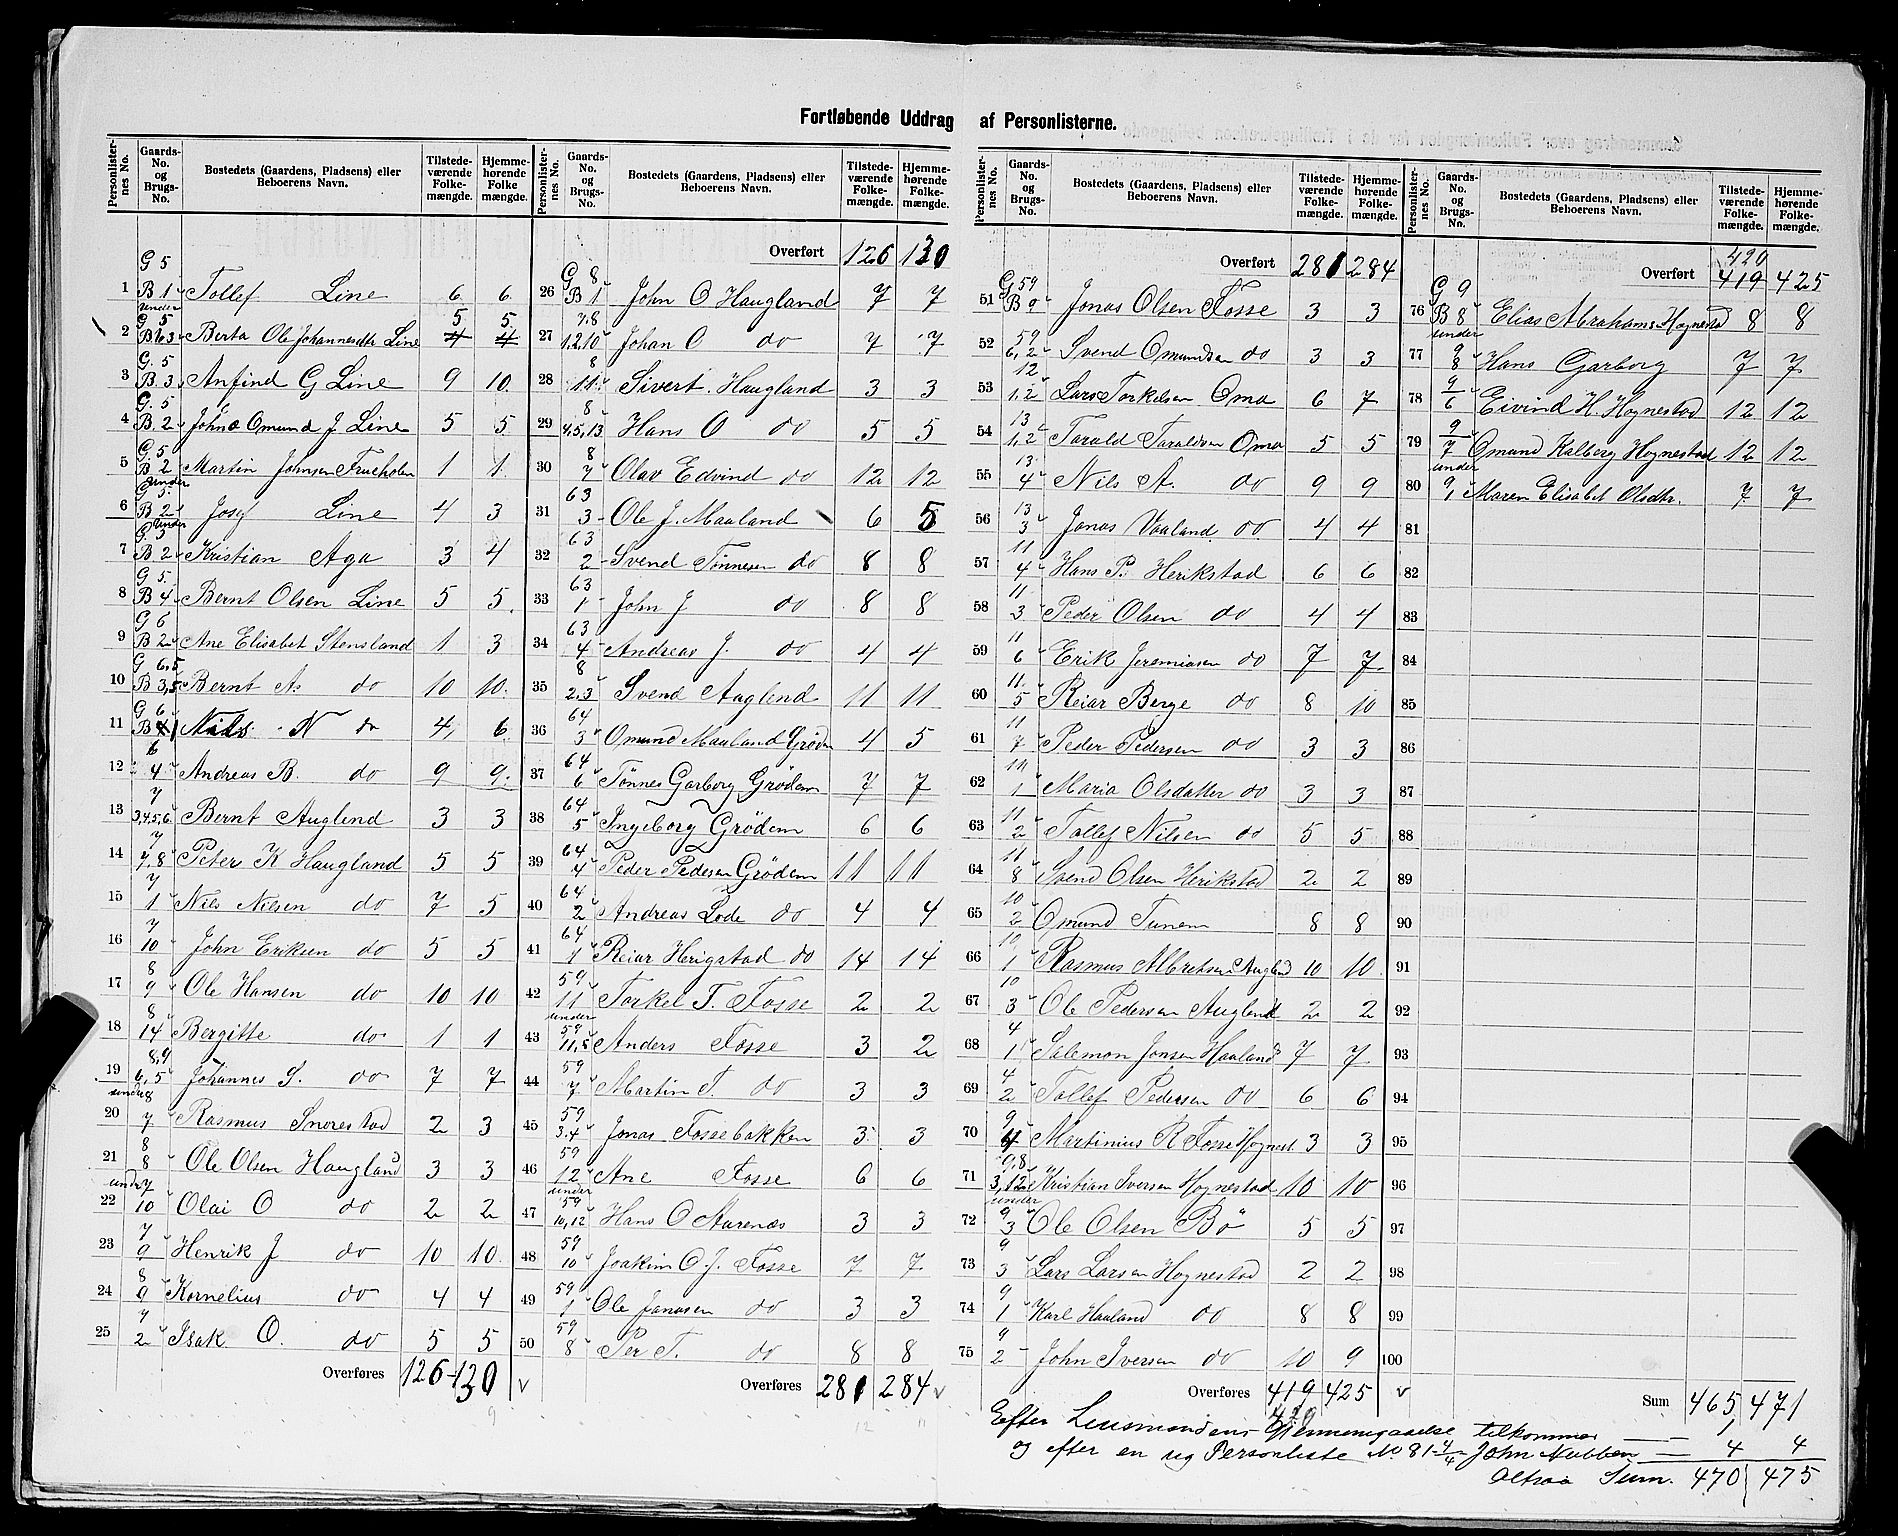 Fortløbende Uddrag af Personlisterne.
Personlisternes No. Gaards-No. og Brugs-No. Bostedets (Gaardens, Pladsens) eller Beboerens Navn. Tilstedeværende Folkemængde. Hjemmehørende Folkemængde.
1 G 5 B 1 Tollef Line 6 6
under
2 G. 5 B 6 3 Berta Ole Johannesdtr Line 4 4 5 5
3 G. 5 B. 3 Anfind G Line 9 10
4 G. 5 B. 2 Omund J. Line 5 5
5 G. 5 B. 2 Martin Johnsen 1 1
under
6 G 5. B 2 Josef Line 4 3
under
7 G 5 B 2 Kristian Aga 3 4
8 G 5. B 4 Bernt Olsen Line 5 5
9 G 6 B 2 Ane Elisabet Stensland 1 3
10 G 6,5 B 3,5 Bernt A. do 10 10
11 G 6 B Nils N do 4 6
12 6 4 Andreas B. do 9 9
13 7 3,4,5,6 Bernt Auglend 3 3
14 7 7,8 Peter K Haugland 5 5
15 7 1 Nils Nilsen do 7 5
16 7 10 John Eriksen do 5 5
17 8 9 Ole Hansen do 10 10
18 8 14 Bergitte do 1 1
19 8,9 6,5 Johannes S. do 7 7
under
20 8 7 Rasmus Snorestad 2 3
21 8 8 Ole Olsen Haugland 3 3
under
22 7 10 Olai O do 2 2
23 7 9 Henrik J do 10 10
24 8 9 Kornelius do 4 4
25 7 2 Isak O. do 5 5
Overføres 126 130
Personlisternes No. Gaards-No. og Brugs-No. Bostedets (Gaardens, Pladsens) eller Beboerens Navn. Tilstedeværende Folkemængde. Hjemmehørende Folkemængde.
Overført 126 130
26 G 8 B 1 John O Haugland 7 7
27 7,8 1,2,10 Johan O do 7 7
28 8 11 Sivert Haugland 3 3
29 8 4,5,13 Hans O do 5 5
30 8 7 Olav Edvind do 12 12
31 63 3 Ole J. Maaland 6 5
32 63 2 Svend Tønnesen do 8 8
33 63 1 John J do 8 8
34 63 4 Andreas J. do 4 4
35 8 2,3 Svend Auglend 11 11
36 64 3 Omund Maaland Grødem 4 5
37 64 6 Tønnes Garborg Grødem 7 7
38 64 5 Ingeborg Grødem 6 6
39 64 4 Peder Pedersen Grødem 11 11
40 64 2 Andreas Lode do 4 4
41 64 1 Reiar Herigstad do 14 14
42 59 11 Torkel T. Fosse 2 2
under
43 59 11,5 Anders Fosse 3 2
44 59 7 Martin T. do 3 3
45 59 3.4 Jonas Fossebakken 3 3
46 59 12 Ane Fosse 6 6
under
47 59 10,12 Hans O Aarenæs 3 3
48 59 10 Joakim O. J. Fosse 7 7
49 59 1 Ole Janasen do 3 3
50 59 8 Per T. do 8 8
Overføres 281 284
Personlisternes No. Gaards-No. og Brugs-No. Bostedets (Gaardens, Pladsens) eller Beboerens Navn. Tilstedeværende Folkemængde. Hjemmehørende Folkemængde.
Overført 281 284
51 G 59 B 9 Jonas Olsen Fosse 3 3
52 59 6,2 Svend Omundsen do 3 3
53 12 1,2 Lars Torkelsen Oma 6 7
54 13 1,2 Tarald Taraldsen Oma 5 5
55 13 4 Nils A. do 9 9
56 13 3 Jonas Vaaland do 4 4
57 11 4 Hans P. Herikstad 6 6
58 11 3 Peder Olsen do 4 4
59 11 6 Erik Jeremiasen do 7 7
60 11 5 Reiar Berge do 8 10
61 11 7 Peder Pedersen do 3 3
62 11 1 Maria Olsdatter do 3 3
63 11 2 Tollef Nilsen do 5 5
64 11 8 Svend Olsen Herikstad 2 2
65 10 2 Omund Tunem 8 8
66 10 1 Rasmus Albretsen Auglend 10 10
67 10 3 Ole Pedersen Auglend 2 2
68 4 1 Salemon Jonsen Haaland 7 7
69 4 2 Tollef Pedersen do 6 6
70 9 4 Martinius R Fosse Hognest. 3 3
71 9,8 3,12 Kristian Iversen Hognestad 10 10
under
72 9 3 Ole Olsen Bö 5 5
73 9 3 Lars Larsen Hognestad 2 2
74 9 1 Karl Haaland do 8 8
75 9 2 John Iversen do 10 9
Overføres 419 425
420
Personlisternes No. Gaards-No. og Brugs-No. Bostedets (Gaardens, Pladsens) eller Beboerens Navn. Tilstedeværende Folkemængde. Hjemmehørende Folkemængde.
420
Overført 419 425
76 G 9 B 8 Elias Abrahams Hognestad 8 8
under
77 9 8 Hans Garborg 7 7
78 9 6 Eivind H. Hognestad 12 12
79 9 7 Omund Kalberg Hognestad 12 12
under
80 9 1 Maren Elisabet Olsdtr. 7 7
81
82
83
84
85
86
87
88
89
90
91
92
93
94
95
96
97
98
99
100
Sum 465 471
Efter Lensmandens Gjennemgaaelse tilkommer 1
og efter en ny Personliste No 81 4/4 John Nubben 4 4
Altsaa Sum. 470 475